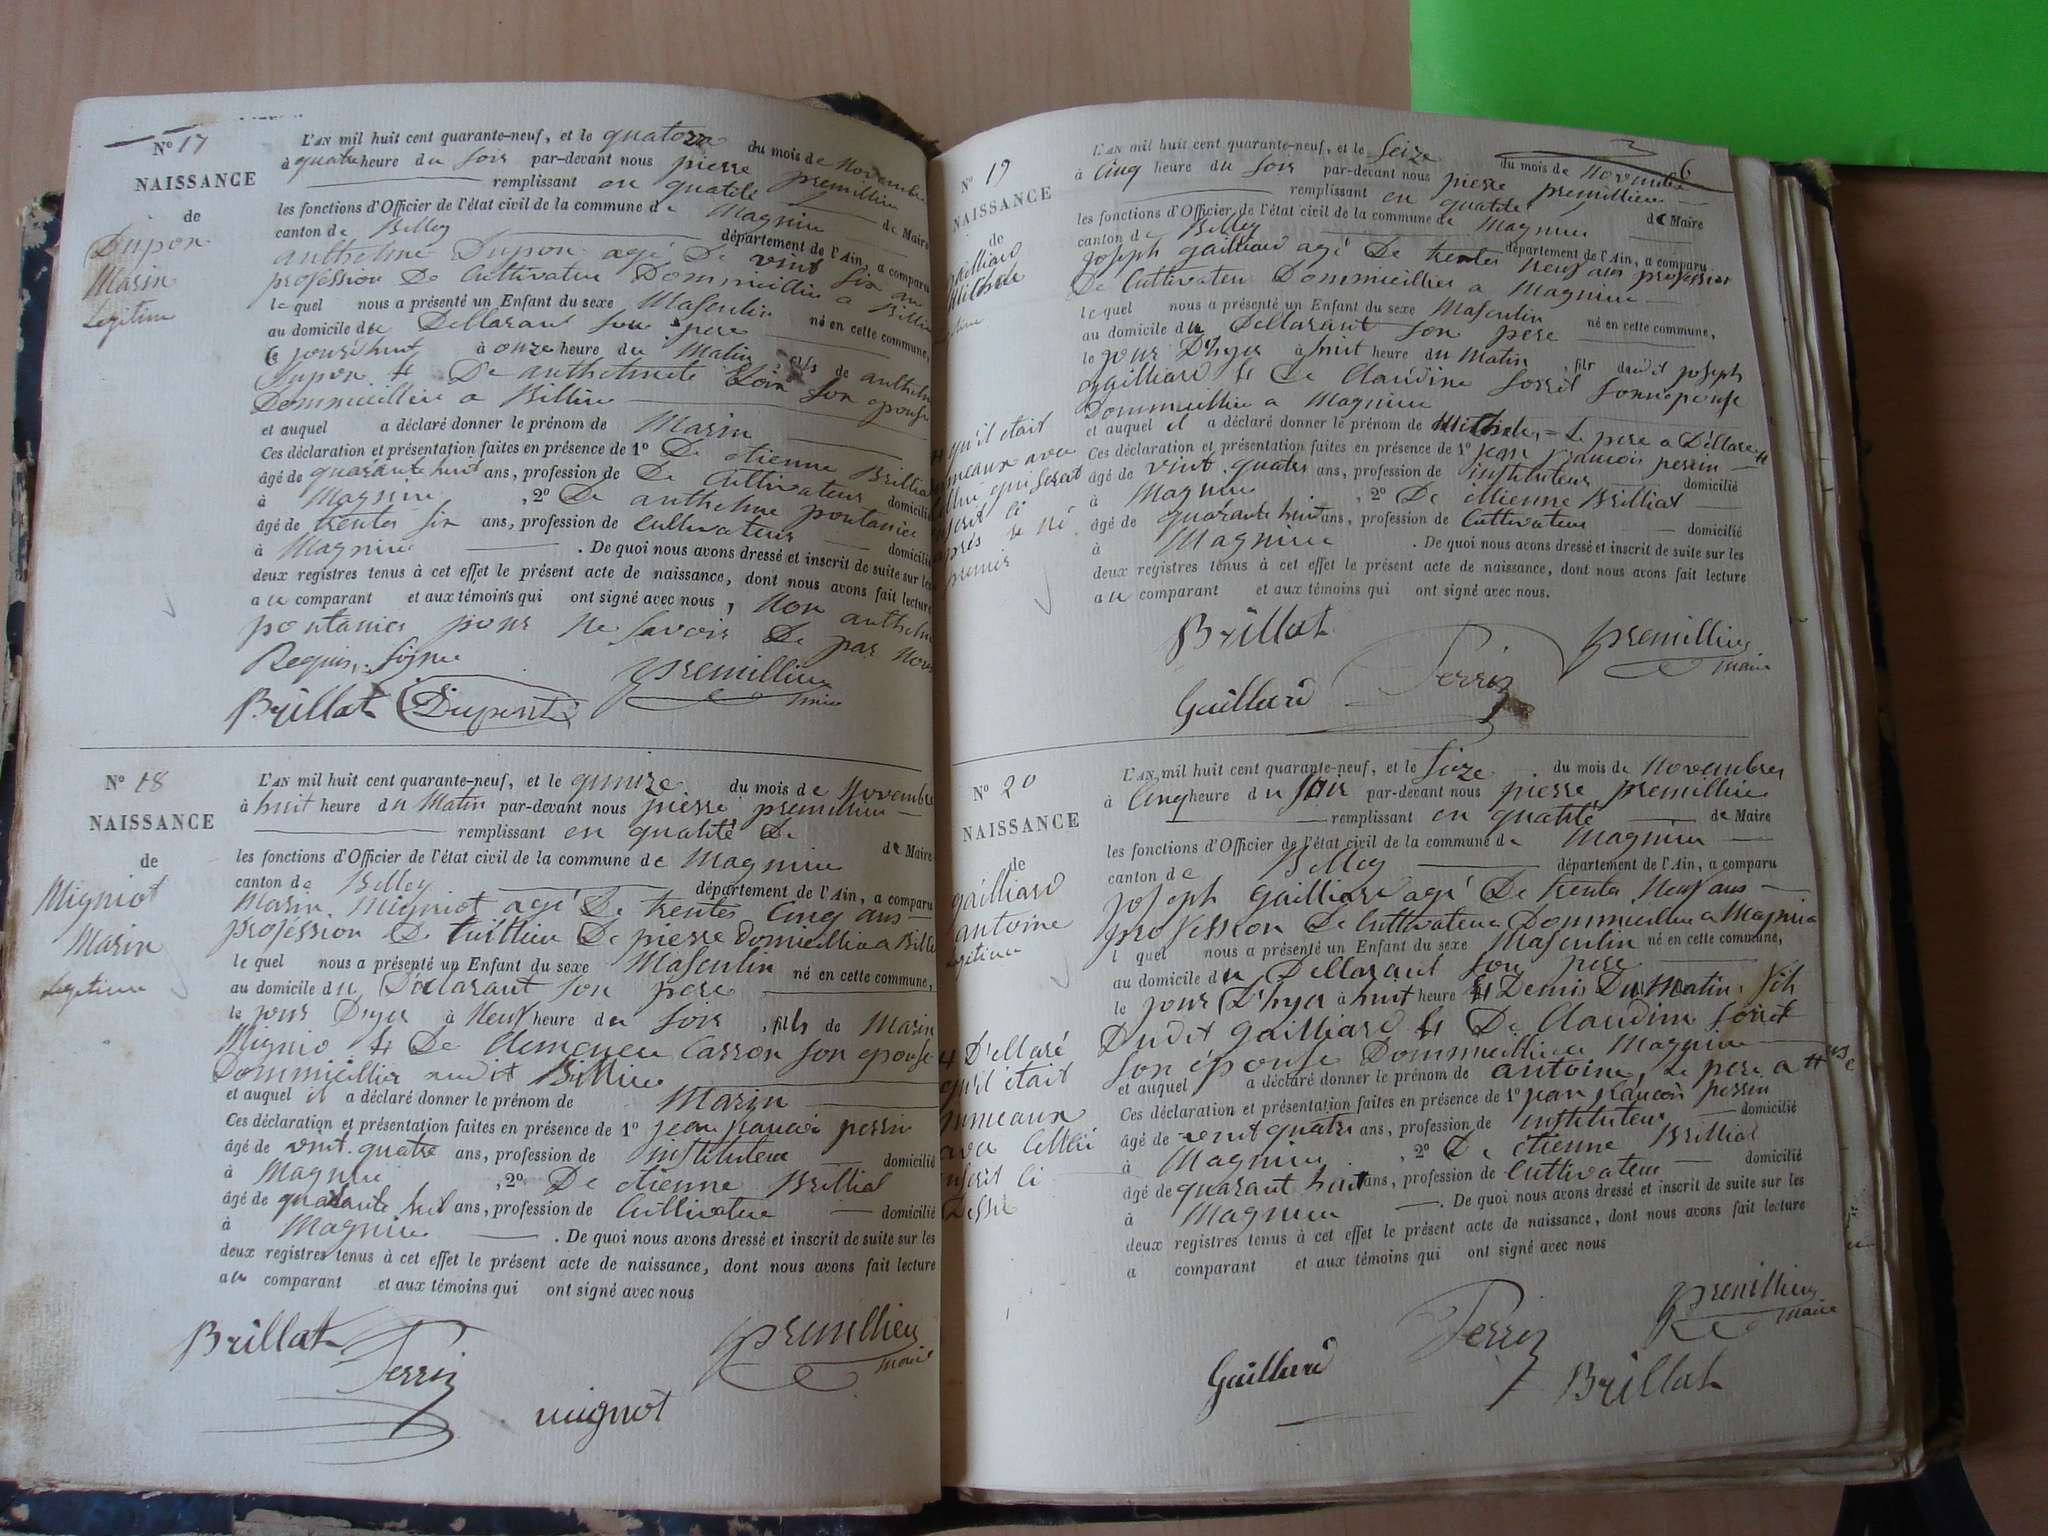 N° 17
NAISSANCE
de
Dupon
Marin
Legitime
L'AN mil huit cent quarante-neuf, et le quatorze du mois de Novembre
à quatre heure du soir par-devant nous pierre premillieu
remplissant en qualité de Maire
les fonctions d'Officier de l'état civil de la commune de Magnieu
canton de Belley département de l'Ain, a comparu
anthelme Dupon agé De vint six an
profession De Cultivateur Dommicillié a Billieu
le quel nous a présenté un Enfant du sexe Masculin né en cette commune,
au domicile du Dellarant son pere
à onze heure du Matin fils de anthelme
Dupon & De anthelmete son epouse
Dommicilliée a Billieu
et auquel a déclaré donner le prénom de Marin
Ces déclaration et présentation faites en présence de 1° De etienne Brilliat
âgé de quarante huit ans, profession de De Cultivateur domicilié
à Magnieu , 2° De anthelme pontanier
âgé de trentes six ans, profession de Cultivateur domicilié
à Magnieu . De quoi nous avons dressé et inscrit de suite sur les
deux registres tenus à cet effet le présent acte de naissance, dont nous avons fait lecture
au comparant et aux témoins qui ont signé avec nous, Non anthelme
pontanier pour ne savoir De par Nous
Requis, signé
Premillieu
Brillat Dupont maire
N° 18
NAISSANCE
de
Migniot
Marin
Legitime
L'AN mil huit cent quarante-neuf, et le quinze du mois de Novembre
à huit heure du Matin par-devant nous pierre premillieu
remplissant en qualité De de Maire
les fonctions d'Officier de l'état civil de la commune de Magnieu
canton de Belley département de l'Ain, a comparu
Marin Migniot agé De trentes Cinq ans
profession De tuillieu De pierre Domicillié a Billieu
le quel nous a présenté un Enfant du sexe Masculin né en cette commune,
au domicile du Déclarant son pere
le jour Dyer à Neuf heure du soir , fils de Marin
Mignio & De Carron son epouse
Dommicillier audit Billieu
et auquel il a déclaré donner le prénom de Marin
Ces déclaration et présentation faites en présence de 1° jean francois perrin
âgé de vint quatre ans, profession de instituteur domicilié
à Magnieu , 2° De etienne Brilliat
âgé de quarante huit ans, profession de Cultivateur domicilié
à Magnieu . De quoi nous avons dressé et inscrit de suite sur les
deux registres tenus à cet effet le présent acte de naissance, dont nous avons fait lecture
au comparant et aux témoins qui ont signé avec nous
Brillat Premillieu
Perrin maire
mignot
6
N° 19
NAISSANCE
de
gailliard
L'AN mil huit cent quarante-neuf, et le Seize du mois de Novembre
à Cinq heure du soir par-devant nous pierre premillieu
remplissant en qualité de Maire
les fonctions d'Officier de l'état civil de la commune de Magnieu
canton de Belley département de l'Ain, a comparu
joseph gailliard agé De trentes neuf ans profession
De Cultivateur Dommicillier a Magnieu
le quel nous a présenté un Enfant du sexe Masculin né en cette commune,
au domicile du Dellarant son pere
le jour D'hyer à huit heure du Matin , fils dudit joseph
gailliard & De Claudine sorret son epouse
Dommicillie a Magnieu
et auquel il a déclaré donner le prénom de Le pere a Déllaré
Ces déclaration et présentation faites en présence de 1° jean francois perrin
âgé de vint quatre ans, profession de instituteur domicilié
à Magnieu , 2° De etienne Brilliat
âgé de quarante huit ans, profession de Cultivateur domicilié
à Magnieu . De quoi nous avons dressé et inscrit de suite sur les
deux registres tenus à cet effet le présent acte de naissance, dont nous avons fait lecture
au comparant et aux témoins qui ont signé avec nous.
qu'il etait
jumeaux avec
qui serat
inscrit ci
après né
premier
Brillat Premillieu
Perrin maire
Gaillard
N° 20
NAISSANCE
de
gailliard
antoine
legitime
L'AN mil huit cent quarante-neuf, et le Seize du mois de Novembres
à Cinq heure du soir par-devant nous pierre premillieu
remplissant en qualité de Maire
les fonctions d'Officier de l'état civil de la commune de Magnieu
canton de Belley département de l'Ain, a comparu
joseph gailliard agé De trente neuf ans
profession De Cultivateur Dommicillié a Magnieu
l quel nous a présenté un Enfant du sexe Masculin né en cette commune,
au domicile du Dellarant son pere
le jour D'hyer à huit heure & Demis Du Matin, fils
Dudit gailliard & De Claudine sorret
son épouse Dommicillie a Magnieu
et auquel a déclaré donner le prénom de antoine, Le pere a
Ces déclaration et présentation faites en présence de 1° jean francois perrin
âgé de vint quatre ans, profession de instituteur domicilié
à Magnieu , 2° De etienne Brilliat
âgé de quarant huit ans, profession de Cultivateur domicilié
à Magnieu . De quoi nous avons dressé et inscrit de suite sur les
deux registres tenus à cet effet le présent acte de naissance, dont nous avons fait lecture
a comparant et aux témoins qui ont signé avec nous
D'ellaré
qu'il était
jumeaux
avec
inscrit ci
Dessu
Premillieu
Perrin maire
Gaillard Brillat